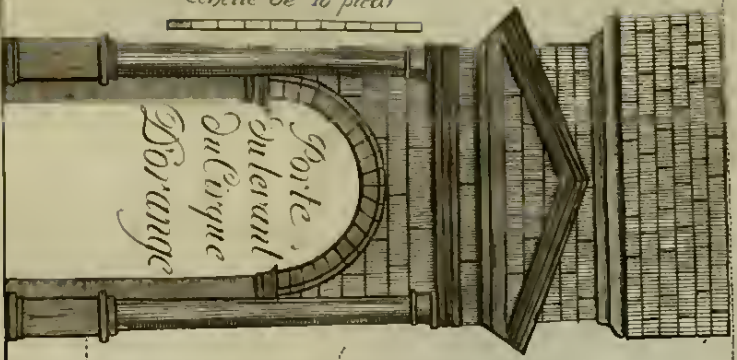 Echelle de 10 pieds
Porte,
du levant
du Cirque
D'orange